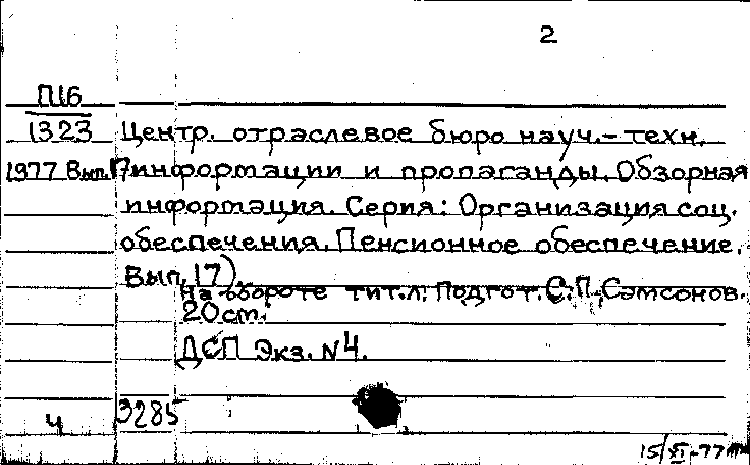 2
П16
1323 Центр. отраслевое бюро науч.-техн.
1977 Вып.17 информации и пропаганды. Обзорная
информация. Серия: Организация соц.
обеспечения. Пенсионное обеспечение.
Вып. 17).
На обороте тит.л: Подгот. С.П. Самсонов.
20 cm.
ДСП Экз. N4.
ч 3285
15/XI-77